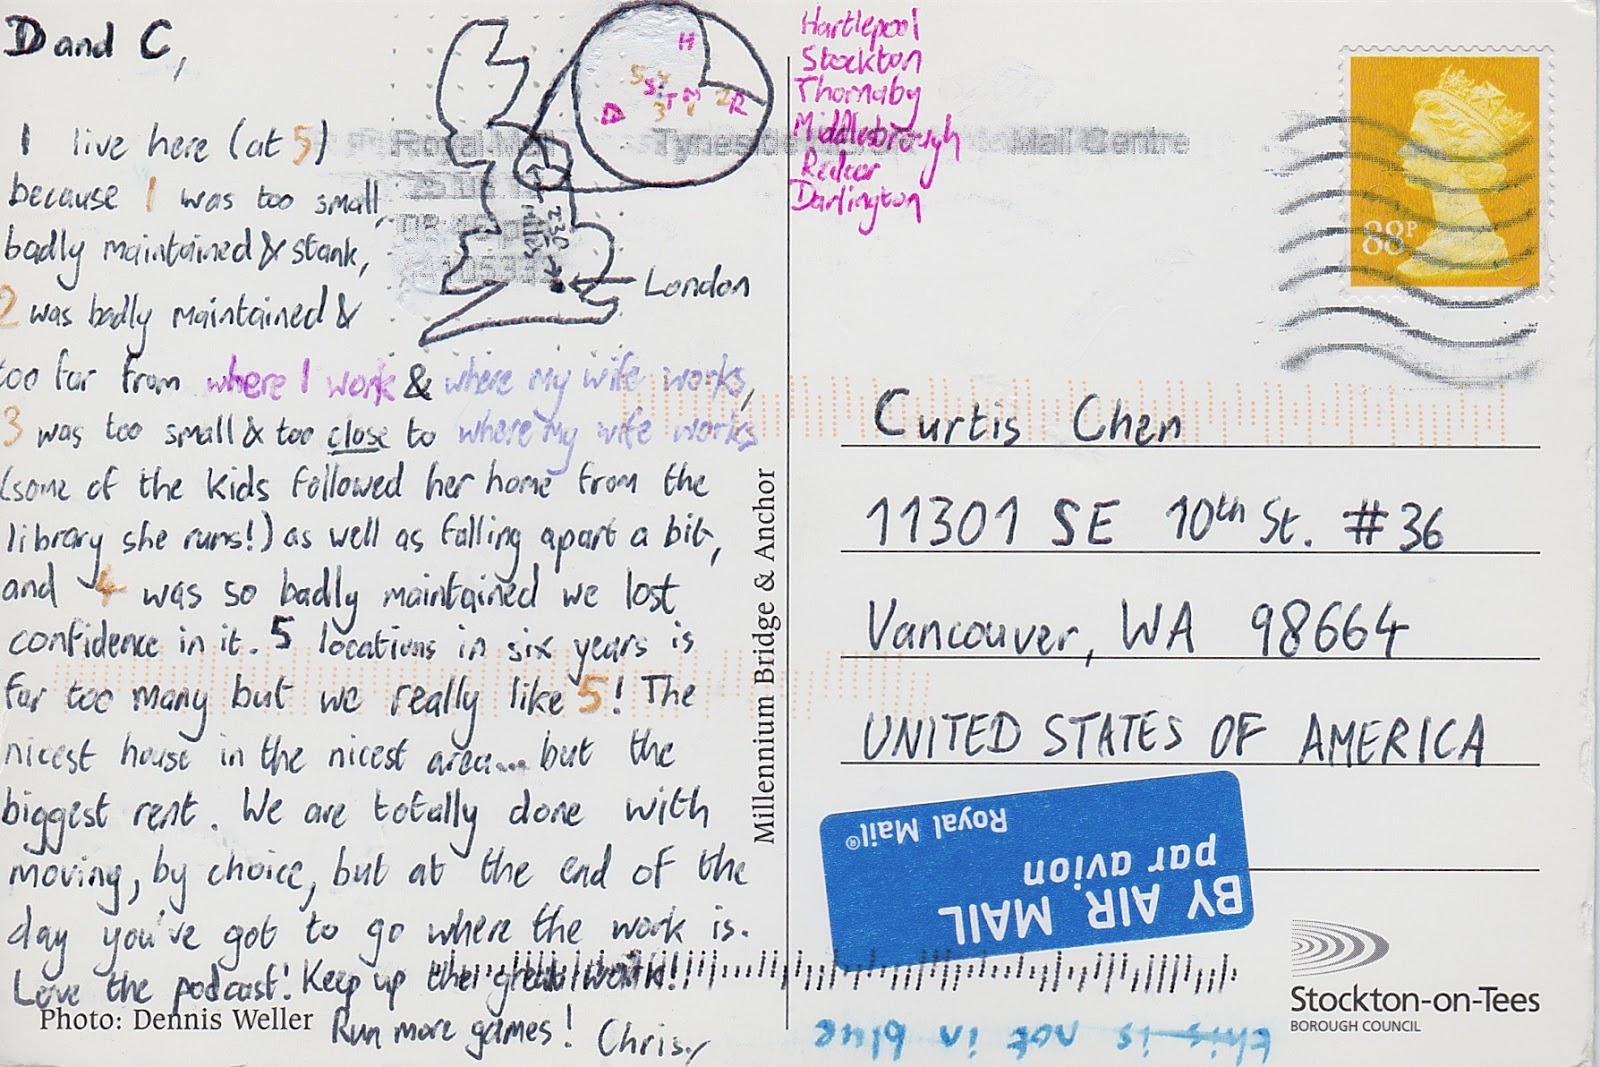 D and C,
I live here (at 5)
because 1 was too small,
badly maintained & stank,
2 was badly maintained &
too far from where I work & where my wife works,
3 was too small & too close to where my wife works
(some of the kids followed her home from the
library she runs!) as well as falling apart a bit,
and 4 was so badly maintained we lost
confidence in it. 5 locations in six years is
far too many but we really like 5! The
nicest house in the nicest area... but the
biggest rent. We are totally done with
moving, by choice, but at the end of the
day you've got to go where the work is.
Love the podcast! Keep up the great work!
Run more games! Chris./
Photo: Dennis Weller
H
5 4
S
D 3 T M 1 2 R
230
miles
London
Hartlepool
Stockton
Thornaby
Middlesbrough
Redcar
Darlington
Royal Mail Tyneside Mail Centre
88P
Millennium Bridge & Anchor
Curtis Chen
11301 SE 10th St. #36
Vancouver, WA 98664
UNITED STATES OF AMERICA
BY AIR MAIL
par avion
Royal Mail®
Stockton-on-Tees
BOROUGH COUNCIL
this is not in blue